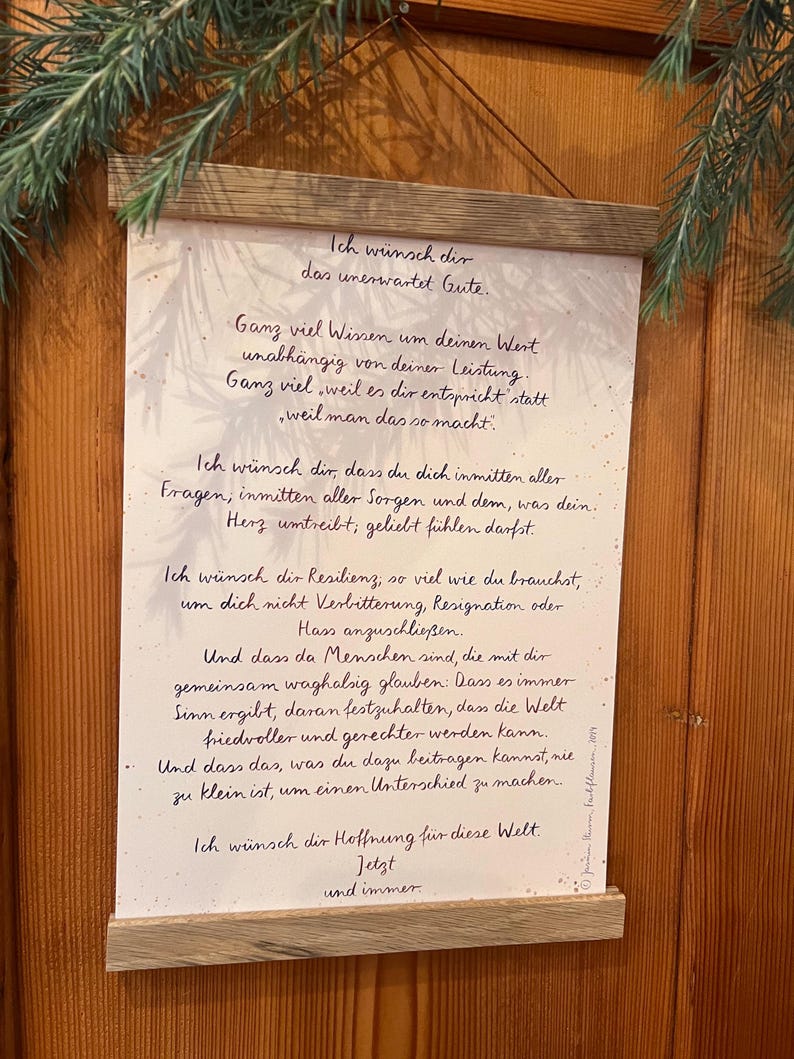 Ich wünsch dir
das unerwartet Gute.
Ganz viel Wissen um deinen Wert
unabhängig von deiner Leistung.
Ganz viel „weil es dir entspricht" statt
„weil man das so macht".
Ich wünsch dir, dass du dich inmitten aller
Fragen, inmitten aller Sorgen und dem, was dein
Herz umtreibt, geliebt fühlen darfst.
Ich wünsch dir Resilienz, so viel wie du brauchst,
um dich nicht Verbitterung, Resignation oder
Hass anzuschließen.
Und dass da Menschen sind, die mit dir
gemeinsam waghalsig glauben: Dass es immer
Sinn ergibt, daran festzuhalten, dass die Welt
friedvoller und gerechter werden kann.
Und dass das, was du dazu beitragen kannst, nie
zu klein ist, um einen Unterschied zu machen.
Ich wünsch dir Hoffnung für diese Welt.
Jetzt
und immer.
© Jasmin Sturm, Farbflausen